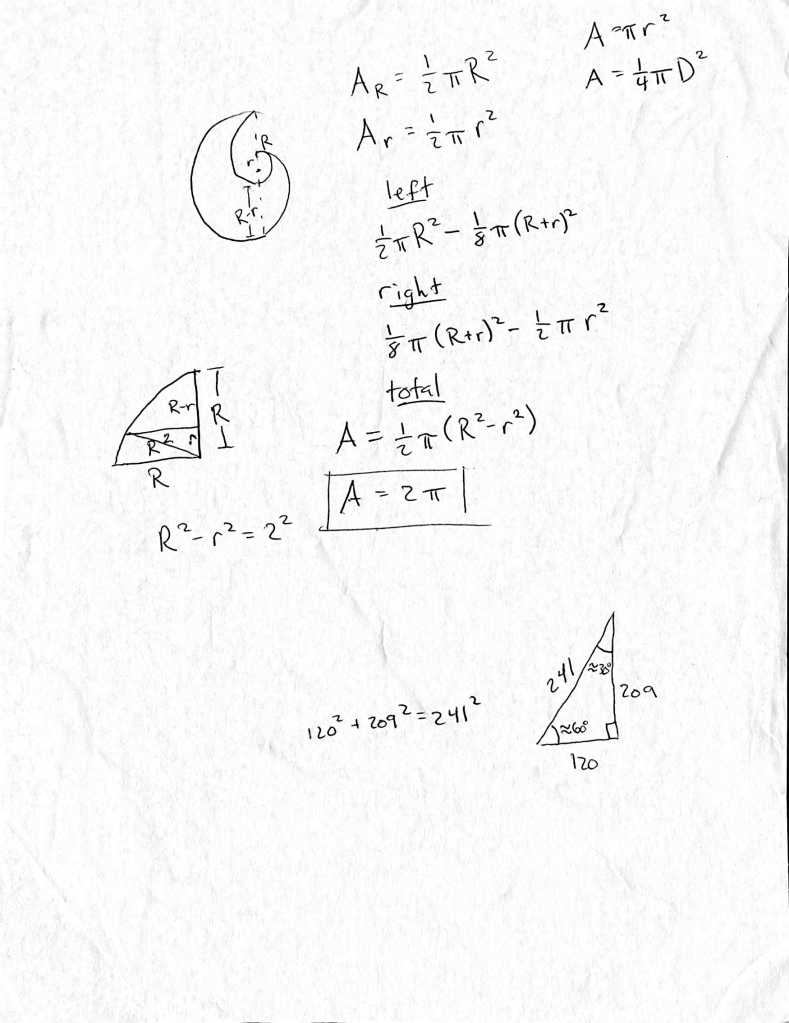 A = πr²
A = ¼πD²
A_R = ½πR²
A_r = ½πr²
R
r
R-r
left
½πR² - ⅛π(R+r)²
right
⅛π(R+r)² - ½πr²
total
A = ½π(R²-r²)
A = 2π
R-r
R
R²
r
R
R²-r² = 2²
120² + 209² = 241²
241
≈30°
209
≈60°
120